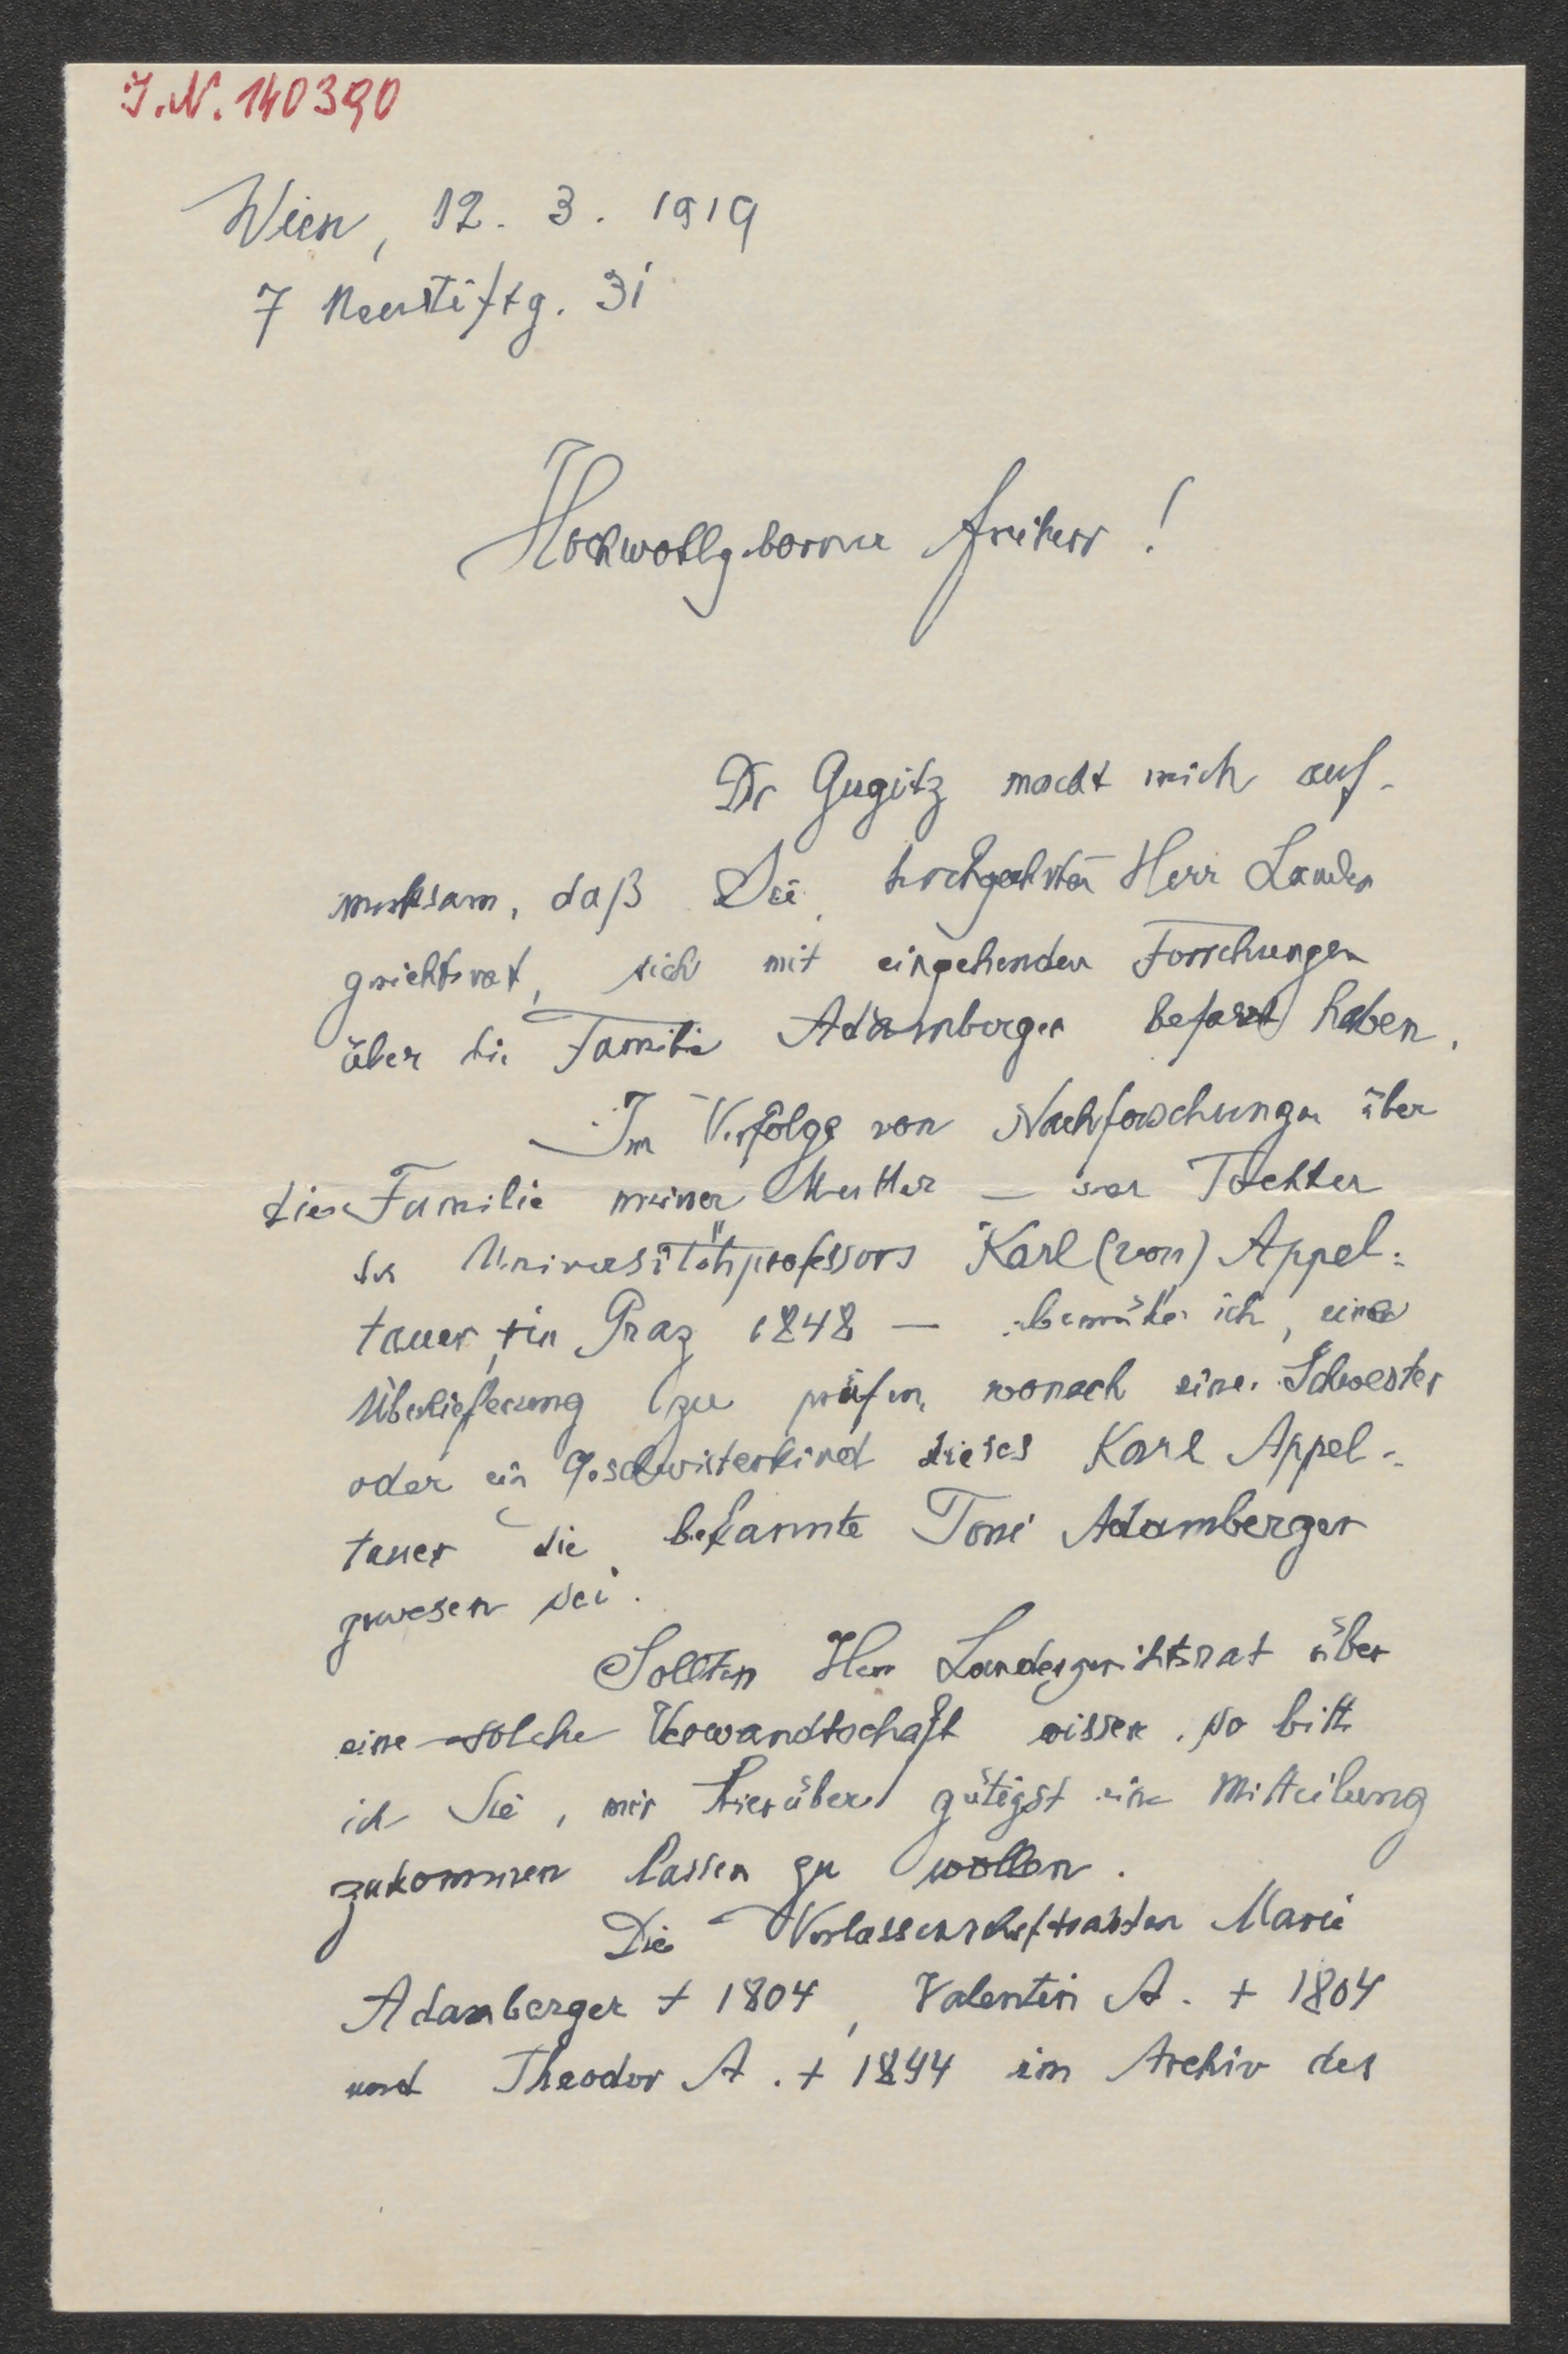 J.N. 140390
Wien, 12. 3. 1919
7 Neustiftg. 31
Hochwohlgeborner Freiherr!
Dr Gugitz macht mich auf-
merksam, daß Sie, hochgeehrter Herr Landes
gerichtsrat, sich mit eingehenden Forschungen
über die Familie Adamberger befasst haben.
Im Verfolge von Nachforschungen über
die Familie meiner Mutter — der Tochter
des Universitätsprofessors Karl (von) Appel-
tauer, † in Graz 1848 — bemühe ich, eine
Überlieferung zu prüfen, wonach eine Schwester
oder ein Geschwisterkind dieses Karl Appel-
tauer die bekannte Toni Adamberger
gewesen sei.
Sollten Herr Landesgerichtsrat über
eine solche Verwandtschaft wissen, so bitte
ich Sie, mir hierüber gütigst eine Mitteilung
zukommen lassen zu wollen.
Die Verlassenschaftsakten Marie
Adamberger † 1804, Valentin A. † 1804
und Theodor A. † 1844 im Archiv des